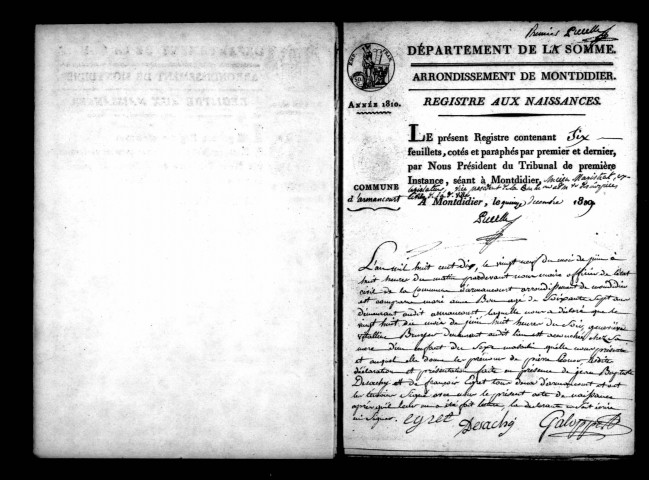 Premier
DÉPARTEMENT DE LA SOMME.
ARRONDISSEMENT DE MONTDIDIER.
ANNÉE 1810.
REGISTRE AUX NAISSANCES.
LE présent Registre contenant Six
feuillets, cotés et paraphés par premier et dernier,
par Nous Président du Tribunal de première
Instance, séant à Montdidier,
COMMUNE
d'armancourt
A Montdidier, le quinze decembre 1809
L'an mil huit cent dix, le vingt neuf du mois de juin à
huit heures du matin pardevant nous maire officier de l'état
civil de la Commune d'armancourt arrondissement de montdidier
est comparue marie anne agé de Soixante Sept ans
demeurant audit armancourt laquelle nous a déclaré que le
vingt huit du mois de juin huit heures du Soir, genevieve
demeurant audit lieu est accouchée chez
mere d'un enfant du Sexe masculin qu'elle nous présente
et auquel elle donne le prénom de pierre
déclaration et présentation faite en présence de jean Baptiste
Desachy et de françois Egret tous deux d'armancourt et ont
les temoins Signé avec nous le présent acte de naissance
après qu'il leur en a été fait lecture, la declarante
Signer. egret Desachy